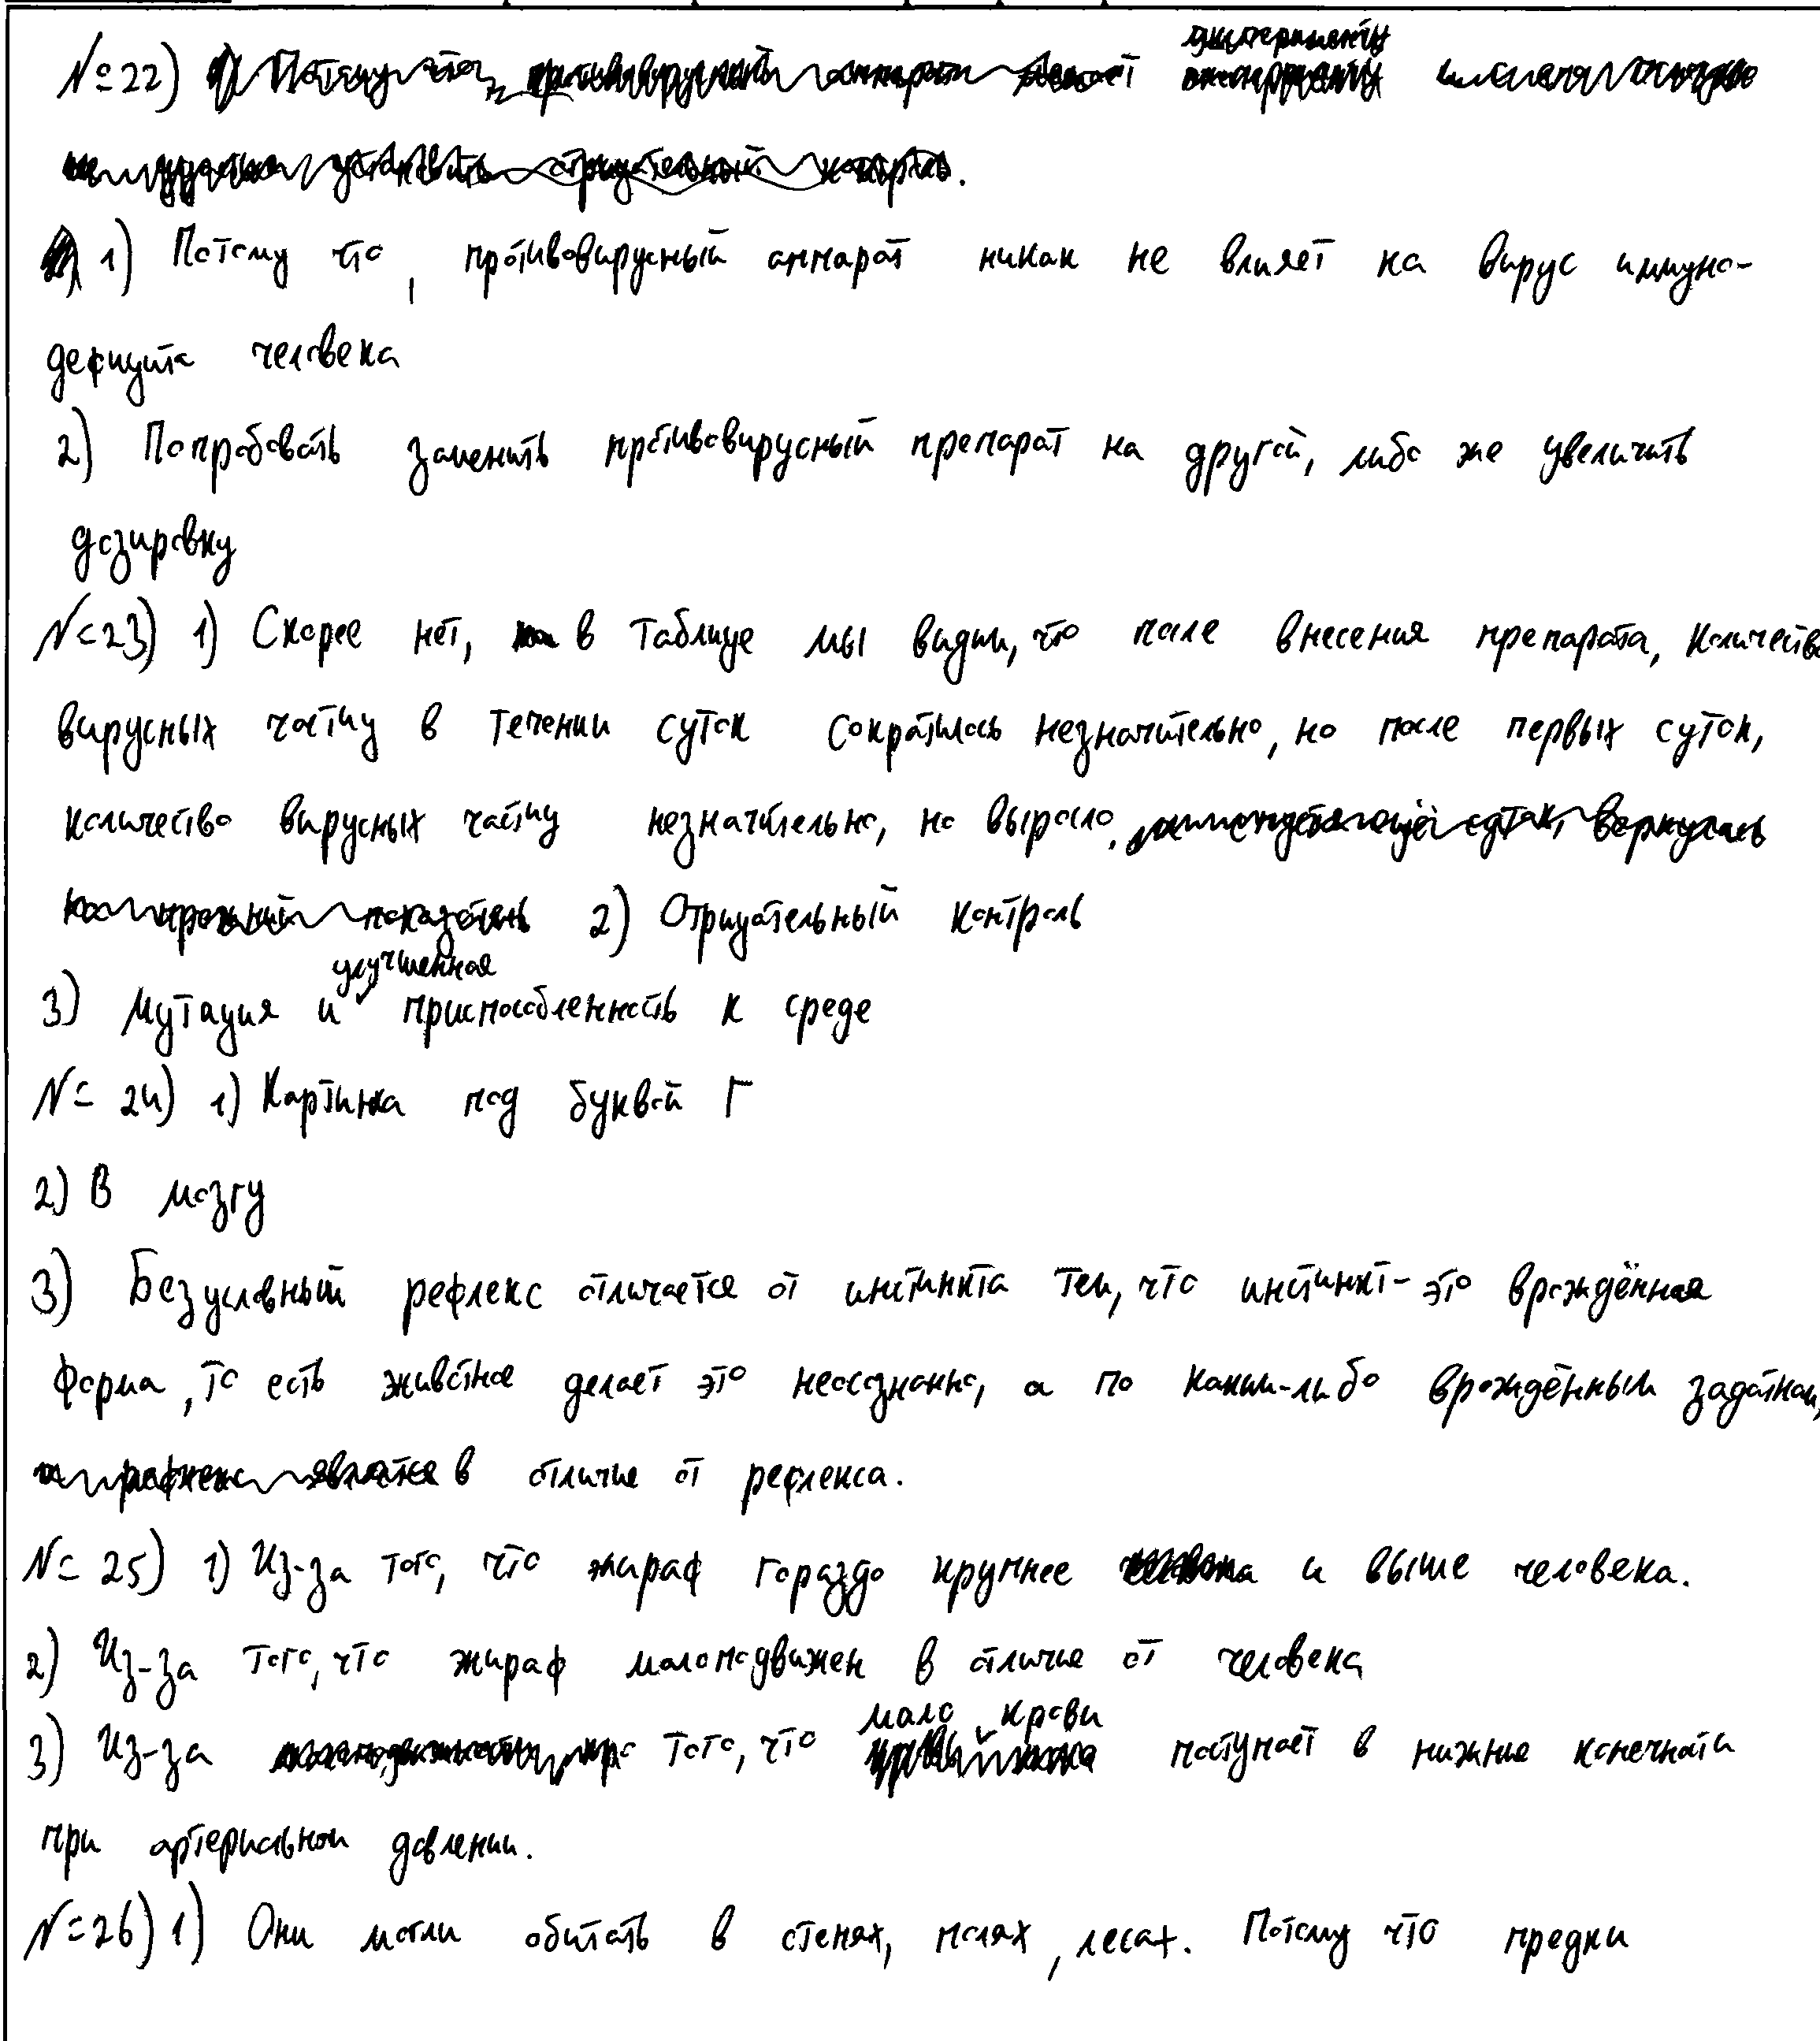 №22)
1) Потому что, противовирусный аппарат никак не влияет на вирус иммуно-
дефицита человека
2) Попробовать заменить противовирусный препарат на другой, либо же увеличить
дозировку
№23) 1) Скорее нет, в таблице мы видим, что после внесения препарата, количество
вирусных частиц в течении суток сократилось незначительно, но после первых суток,
количество вирусных частиц незначительно, но выросло.
2) Отрицательный контроль
3) Мутация и улучшенная приспособленность к среде
№ 24) 1) Картинка под буквой Г
2) В мозгу
3) Безусловный рефлекс отличается от инстинкта тем, что инстинкт- это врождённая
форма, то есть животное делает это неосознанно, а по каким-либо врождённым задаткам,
в отличие от рефлекса.
№ 25) 1) Из-за того, что жираф гораздо крупнее и выше человека.
2) Из-за того, что жираф малоподвижен в отличие от человека
3) Из-за того, что мало крови поступает в нижние конечности
при артериальном давлении.
№26) 1) Они могли обитать в степях, полях, лесах. Потому что предки